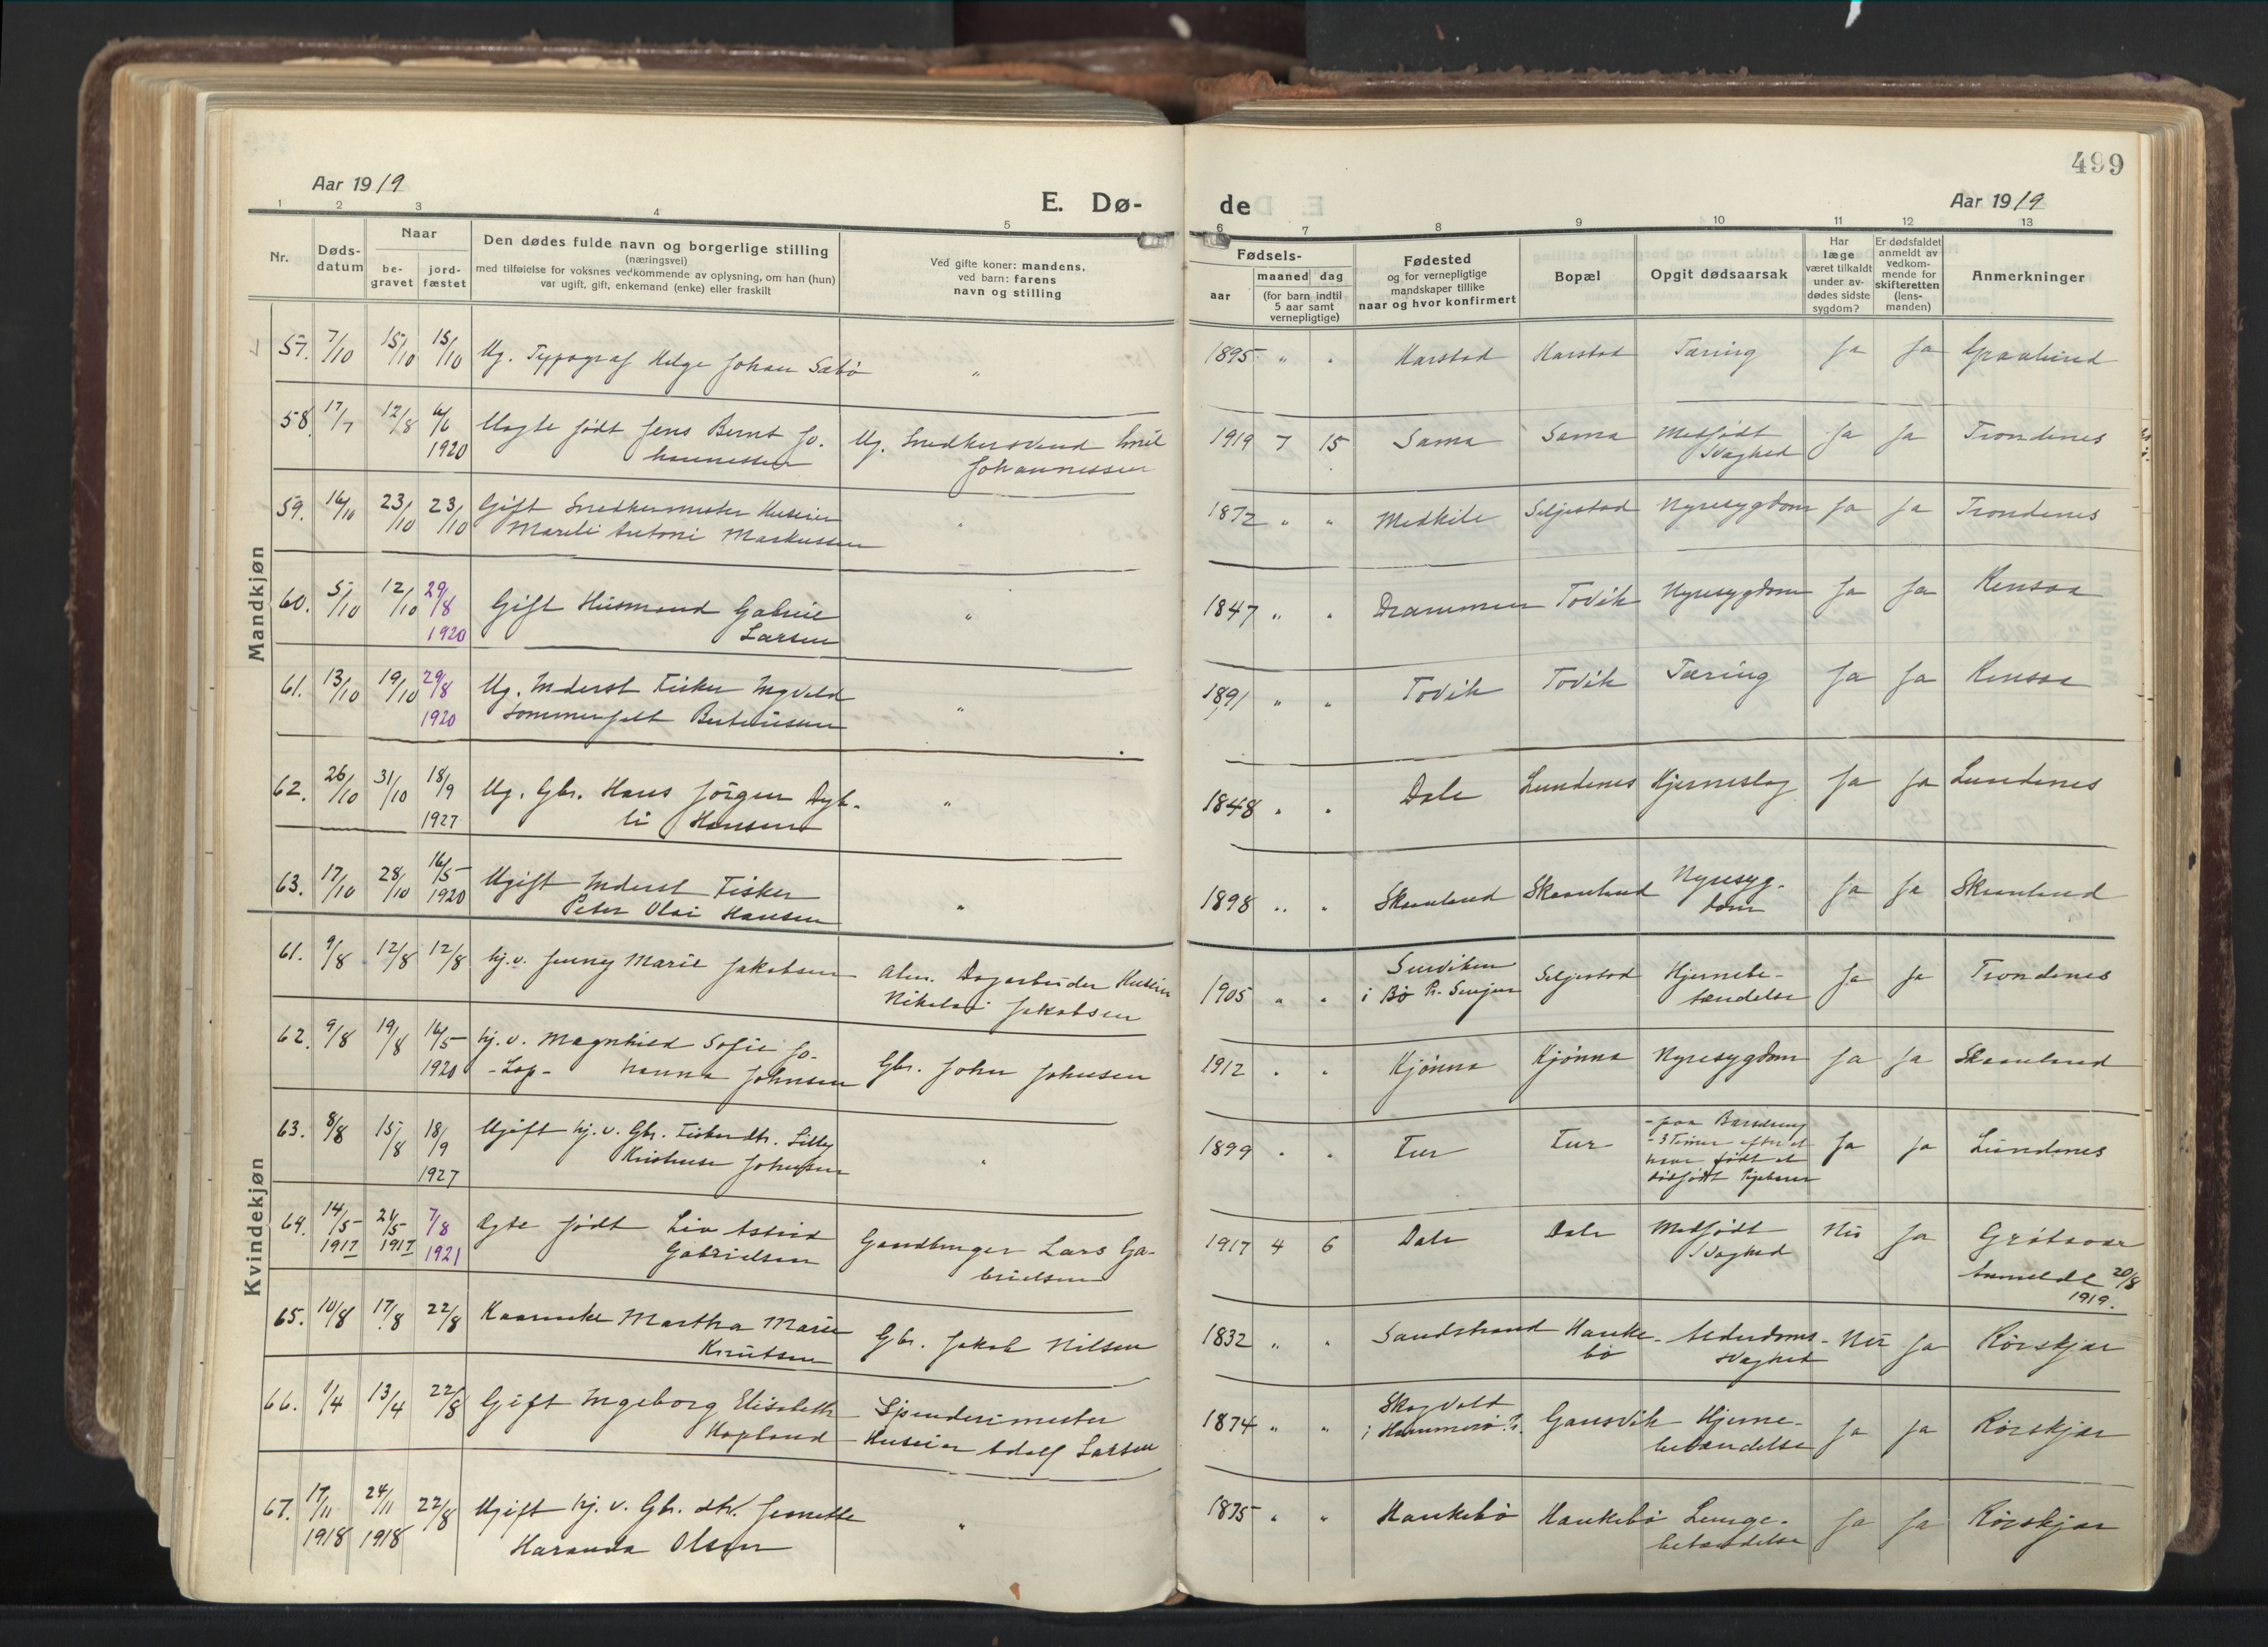 499
Aar 1919
E. Dø-
de
Aar 1919
1 2 3 4 5 6 7 8 9 10 11 12 13
Nr.
Døds-
datum
Naar
be-
gravet
jord-
fæstet
Den dødes fulde navn og borgerlige stilling
(næringsvei)
med tilføielse for voksnes vedkommende av oplysning, om han (hun)
var ugift, gift, enkemand (enke) eller fraskilt
Ved gifte koner: mandens,
ved barn: farens
navn og stilling
Fødsels-
aar
maaned dag
(for barn indtil
5 aar samt
vernepligtige)
Fødested
og for vernepligtige
mandskaper tillike
naar og hvor konfirmert
Bopæl
Opgit dødsaarsak
Har
læge
været tilkaldt
under av-
dødes sidste
sygdom?
Er dødsfaldet
anmeldt av
vedkom-
mende for
skifteretten
(lens-
manden)
Anmerkninger
Mandkjøn
57. 7/10 15/10 15/10 Ug. Typograf Helge Johan Sæbø " 1895 " " Harstad Harstad Tæring Ja Ja
58. 17/7 12/8 6/6 Uægte født Jens Bernt Jo- Ug. Snedkersvend Emil 1919 7 15 Sama Sama Medfødt Ja Ja Trondenes
1920 hannessen Johannessen Svaghed
59. 16/10 23/10 23/10 Gift Snedkermester Huseier " 1872 " " Medkile Seljestad Nyresygdom Ja Ja Trondenes
Antoni Markussen
60. 5/10 12/10 29/8 Gift Husmand Gabriel " 1847 " " Drammen Tovik Nyresygdom Ja Ja Rensaa
1920 Larsen
61. 13/10 19/10 29/8 Ug. Inderst Fisker Ingvald " 1891 " " Tovik Tovik Tæring Ja Ja Rensaa
1920 Sommerfelt
62. 26/10 31/10 18/9 Ug. Gbr. Hans Jørgen Dyb- " 1848 " " Dale Lundenes Hjerneslag Ja Ja Lundenes
1927 li Hansen
63. 17/10 28/10 16/5 Ugift Inderst Fisker " 1898 " " Skaanland Skaanland Nyresyg- Ja Ja Skaanland
1920 Peter Olai Hansen dom
Kvindekjøn
61. 9/8 12/8 12/8 hj.v. Jenny Marie Jakobsen Alm. Dagarbeider Huseier 1905 " " Seljestad Hjernebe- Ja Ja Trondenes
Nikolai Jakobsen i Bø Pr. Senjen tændelse
62. 9/8 19/8 16/5 hj.v. Magnhild Sofie Jo- Gbr. John Johnsen 1912 " " Kjønna Kjønna Nyresygdom Ja Ja Skaanland
1920 - Lap - hanna Johnsen
63. 8/8 15/8 18/9 Ugift hj.v. Gbr. Fiskerdtr. Lilly " 1899 " " Fur Fur - paa Barselseng Ja Ja Lundenes
1927 Johnsen - 3 Timer efter at
have født et
dødfødt Pigebarn
64. 14/5 1917 21/5 1917 7/8 1921 Ægte født Liv Astrid Lars Ga- 1917 4 6 Dale Dale Medfødt Nei Ja Grøtavær
Gabrielsen brielsen Svaghed Anmeldt 20/8
1919.
65. 10/8 17/8 22/8 Kaarenke Martha Marie Gbr. Jakob Nilsen 1832 " " Sandstrand Hauke- Alderdoms- Nei Ja Rørskjær
Knutsen bø svaghed
66. 1/4 13/4 22/8 Gift Ingeborg Elisabeth 1874 " " Gansvik Hjerne- Ja Ja Rørskjær
Hopland Huseier Adolf Larsen i Hammerø betændelse
67. 17/11 24/11 22/8 Ugift hj.v. Gbr. dtr. Jeanette " 1875 " " Haukebø Haukebø Lunge- Ja Ja Rørskjær
1918 1918 Olsen betændelse